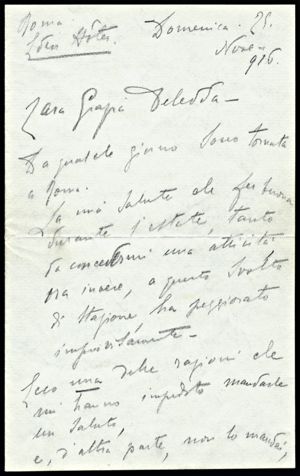 Roma.
Eden Hôtel.
Domenica. 25.
Nov.
916.
Cara Grazia Deledda –
Da qualche giorno sono tornata
a Roma.
La mia salute che fu buona
durante l'estate, tanto
da concedermi una attività
ora invece, a questo svolto
di stagione, ha peggiorato
improvvisamente –
Ecco una delle ragioni che
mi hanno impedito mandarle
un saluto,
e, d'altra parte, non lo mandai,